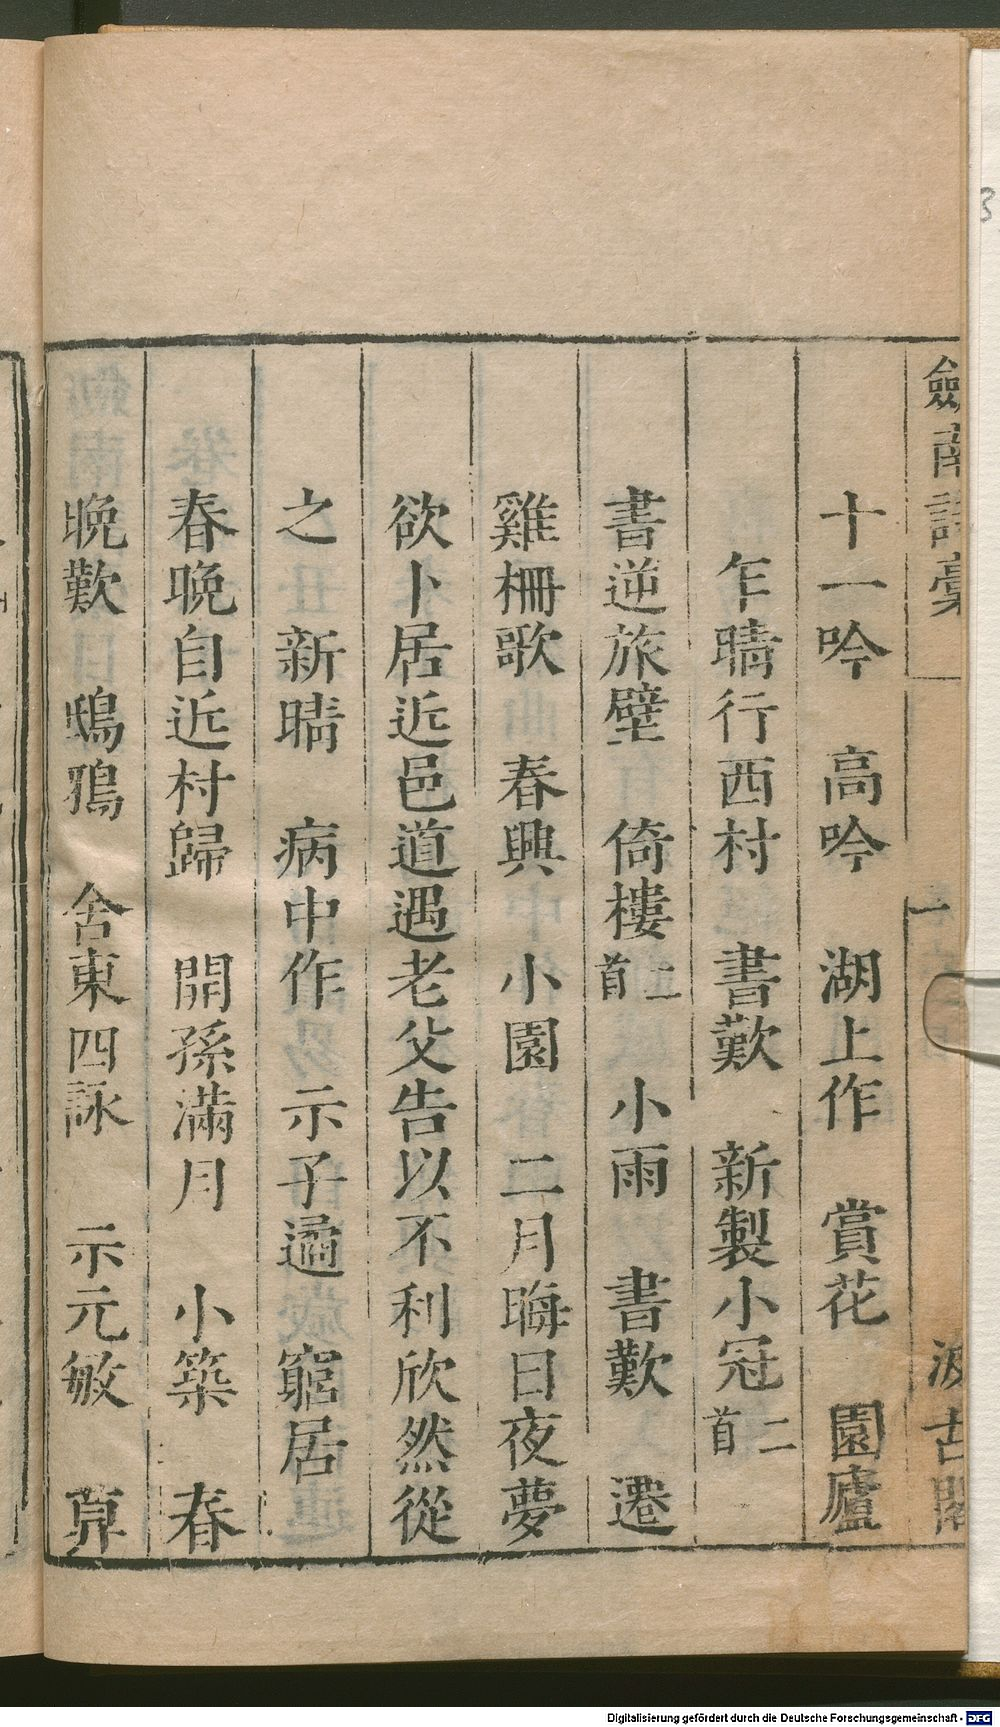 劍南詩稾 一 汲古閣
十一吟 高吟 湖上作 賞花 園廬
乍晴行西村 書歎 新製小冠二首
書逆旅壁 倚樓二首 小雨 書歎 遷
雞柵歌 春興 小園 二月晦日夜夢
欲卜居近邑道遇老父告以不利欣然從
之 新晴 病中作 示子遹 窮居
春晚自近村歸 開孫滿月 小築 春
晚歎 鴟鴉 舍東四詠 示元敏 算
Digitalisierung gefördert durch die Deutsche Forschungsgemeinschaft - DFG